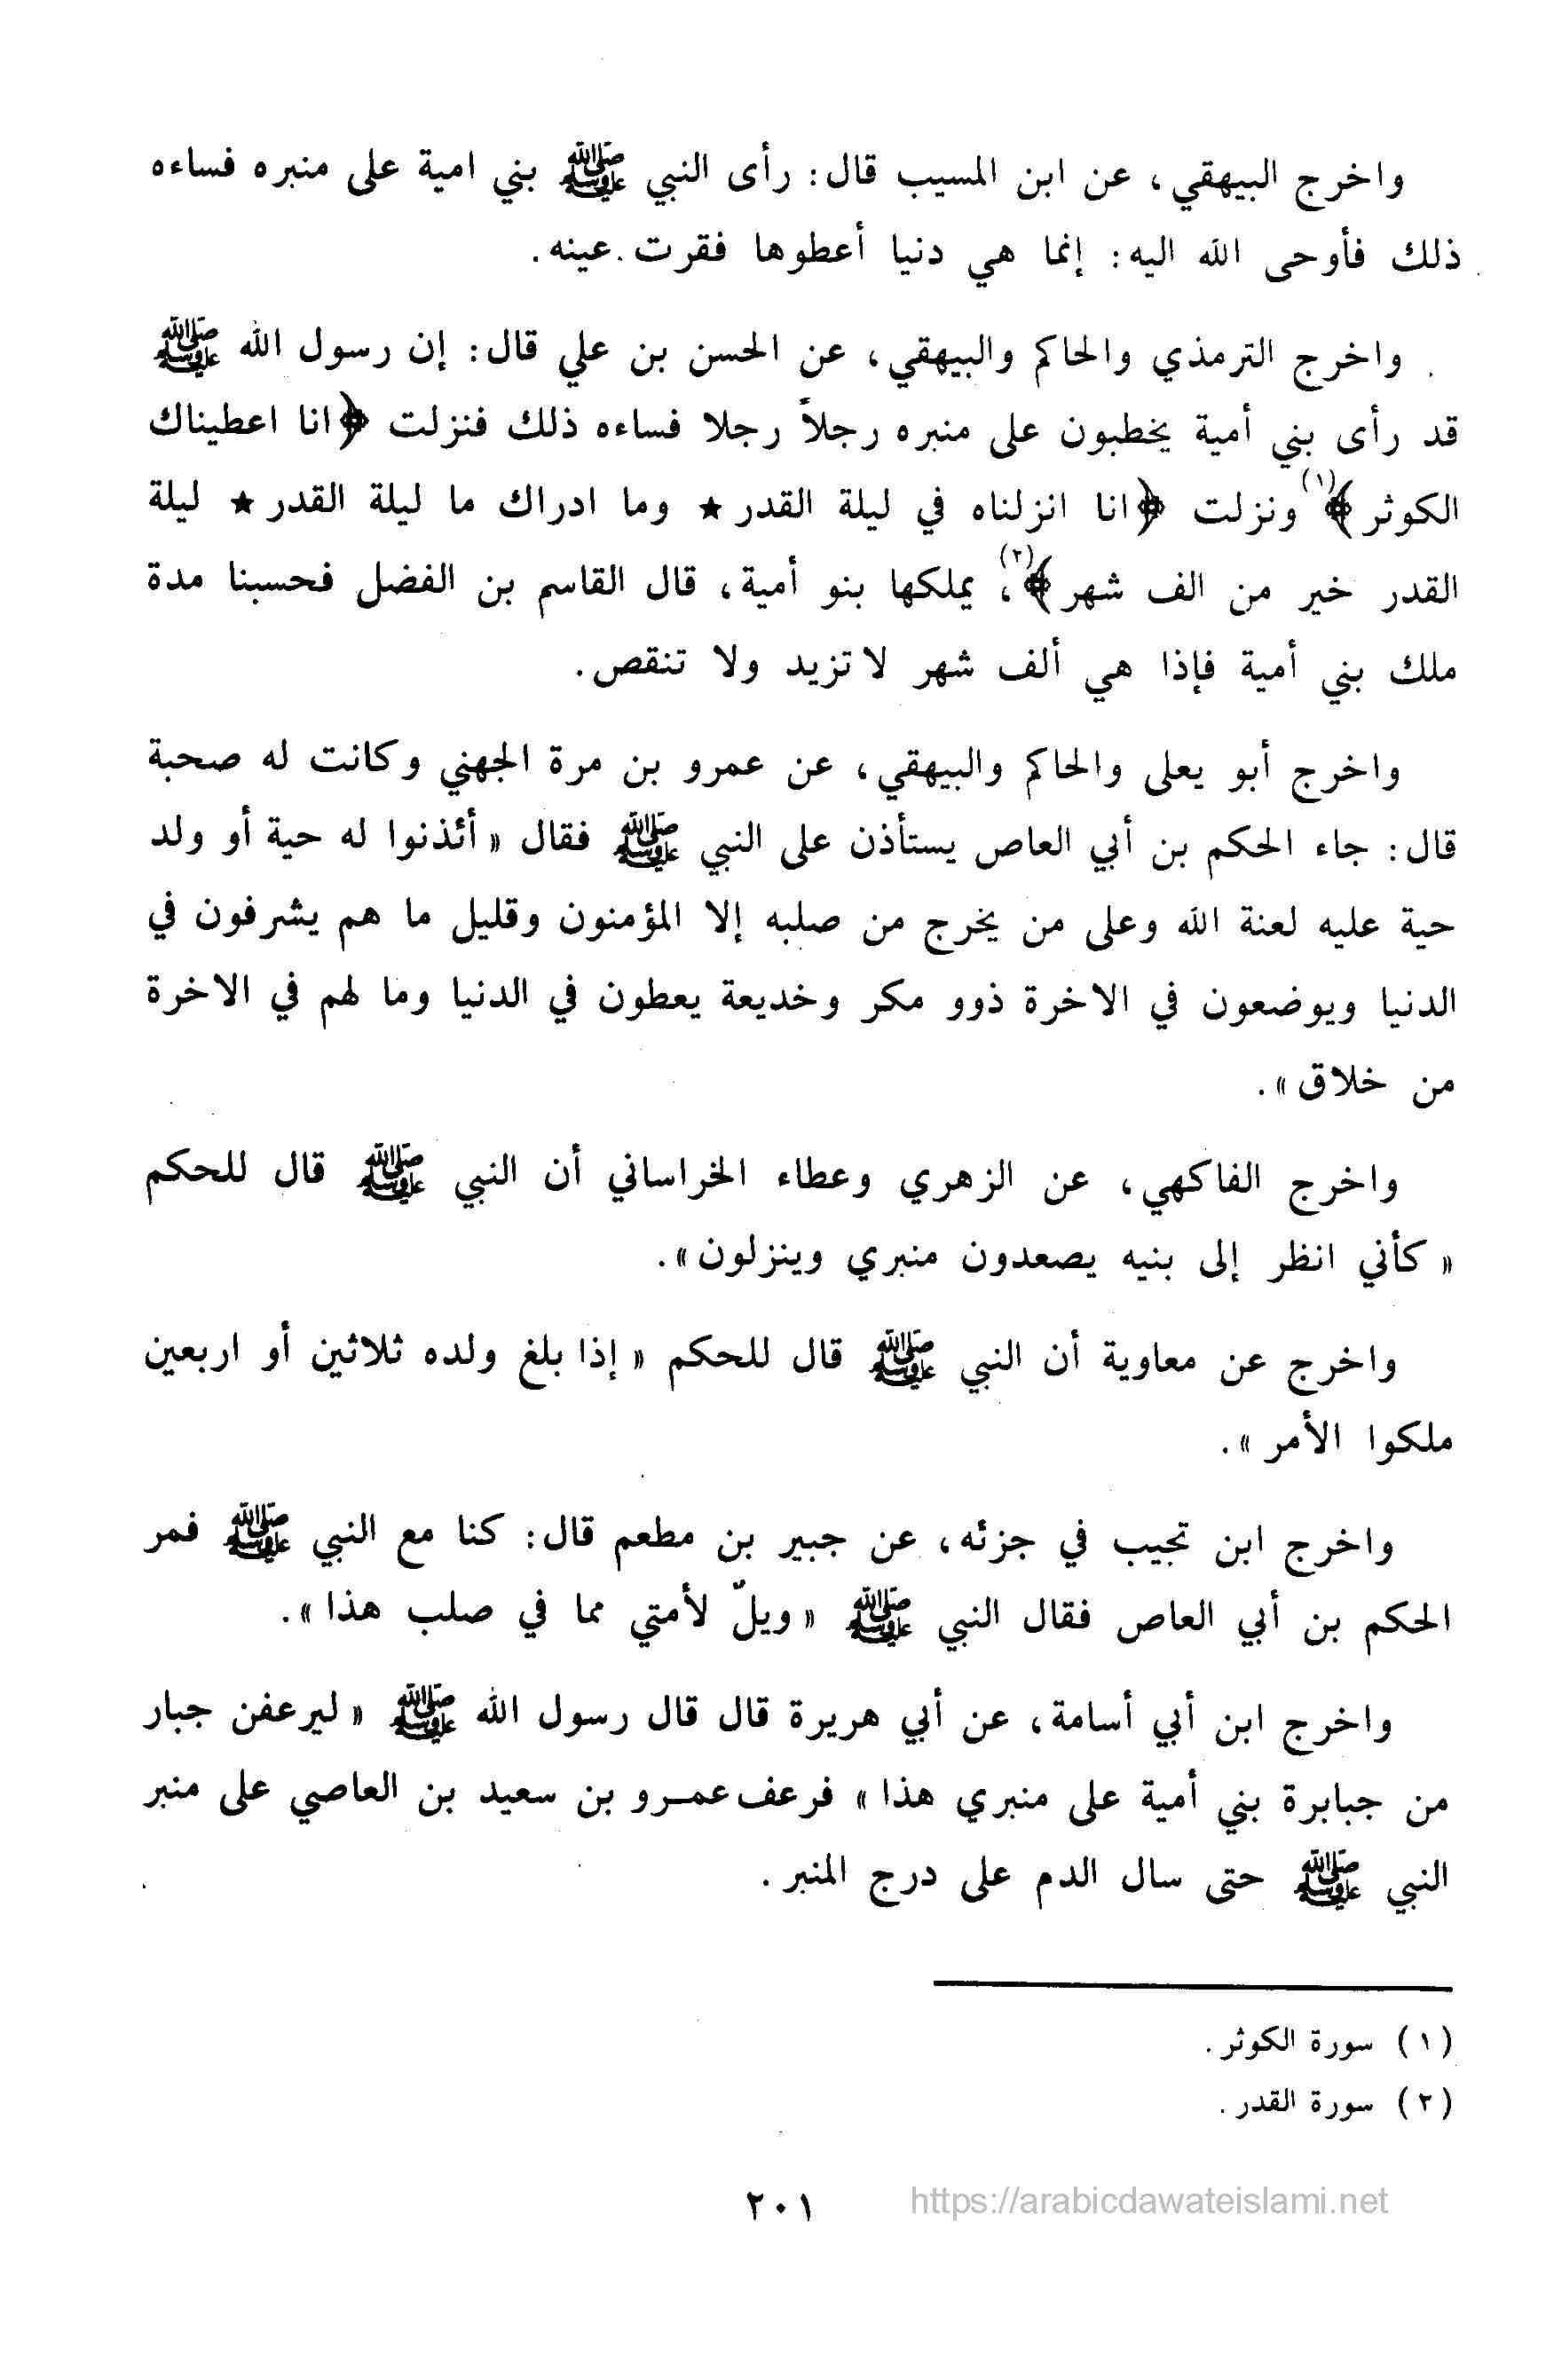 واخرج البيهقي، عن ابن المسيب قال: رأى النبي ﷺ بني امية على منبره فساءه
ذلك فأوحى الله اليه: إنما هي دنيا أعطوها فقرت عينه.
واخرج الترمذي والحاكم والبيهقي، عن الحسن بن علي قال: إن رسول الله ﷺ
قد رأى بني أمية يخطبون على منبره رجلاً رجلا فساءه ذلك فنزلت ﴿انا اعطيناك
الكوثر﴾(١) ونزلت ﴿انا انزلناه في ليلة القدر ★ وما ادراك ما ليلة القدر ★ ليلة
القدر خير من الف شهر﴾(٢)، يملكها بنو أمية، قال القاسم بن الفضل فحسبنا مدة
ملك بني أمية فإذا هي ألف شهر لا تزيد ولا تنقص.
واخرج أبو يعلى والحاكم والبيهقي، عن عمرو بن مرة الجهني وكانت له صحبة
قال: جاء الحكم بن أبي العاص يستأذن على النبي ﷺ فقال « أئذنوا له حية أو ولد
حية عليه لعنة الله وعلى من يخرج من صلبه إلا المؤمنون وقليل ما هم يشرفون في
الدنيا ويوضعون في الاخرة ذوو مكر وخديعة يعطون في الدنيا وما لهم في الاخرة
من خلاق ».
واخرج الفاكهي، عن الزهري وعطاء الخراساني أن النبي ﷺ قال للحكم
« كأني انظر إلى بنيه يصعدون منبري وينزلون ».
واخرج عن معاوية أن النبي ﷺ قال للحكم « إذا بلغ ولده ثلاثين أو اربعين
ملكوا الأمر ».
واخرج ابن تجيب في جزئه، عن جبير بن مطعم قال: كنا مع النبي ﷺ فمر
الحكم بن أبي العاص فقال النبي ﷺ « ويلٌ لأمتي مما في صلب هذا ».
واخرج ابن أبي أسامة، عن أبي هريرة قال قال رسول الله ﷺ « ليرعفن جبار
من جبابرة بني أمية على منبري هذا » فرعف عمـرو بن سعيد بن العاصي على منبر
النبي ﷺ حتى سال الدم على درج المنبر.
(١) سورة الكوثر.
(٢) سورة القدر.
٢٠١
https://arabicdawateislami.net